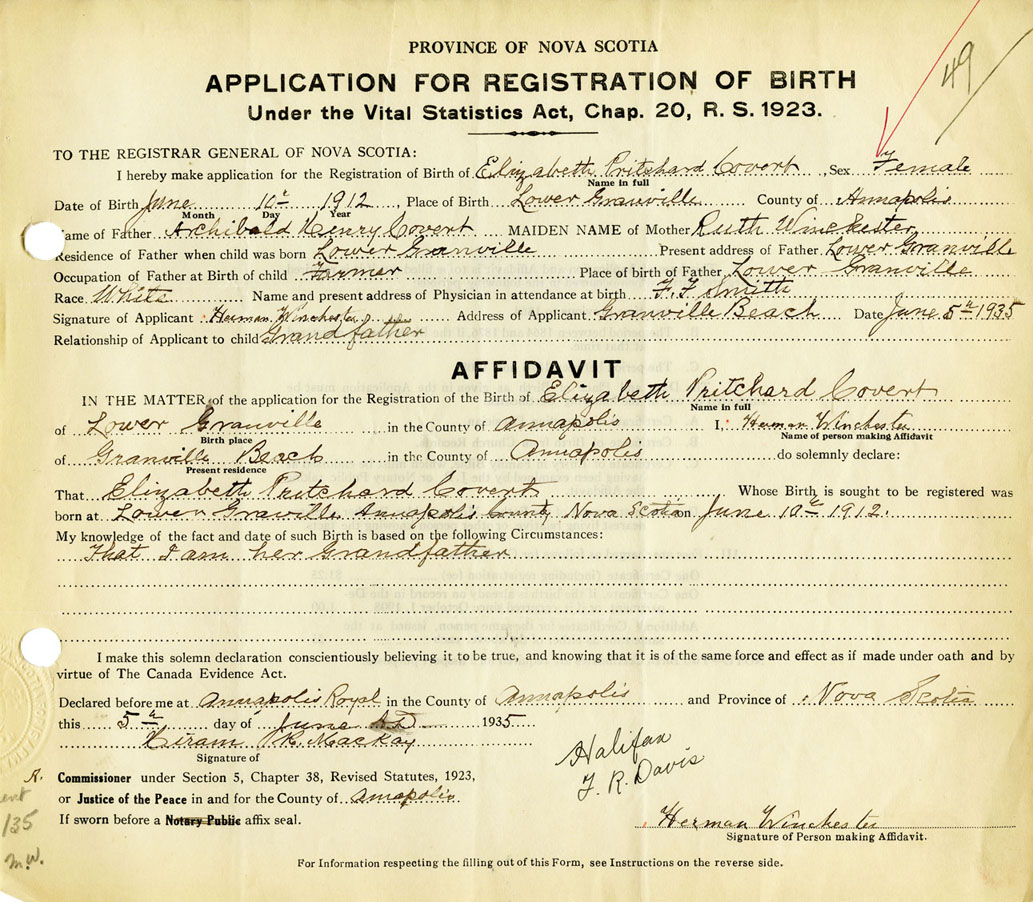 49
PROVINCE OF NOVA SCOTIA
APPLICATION FOR REGISTRATION OF BIRTH
Under the Vital Statistics Act, Chap. 20, R. S. 1923.
TO THE REGISTRAR GENERAL OF NOVA SCOTIA:
I hereby make application for the Registration of Birth of Elizabeth Pritchard Covert, Sex Female
Name in full
Date of Birth June 10th 1912, Place of Birth Lower Granville County of Annapolis
Month Day Year
Name of Father Archibald Henry Covert MAIDEN NAME of Mother Ruth Winchester
Residence of Father when child was born Lower Granville Present address of Father Lower Granville
Occupation of Father at Birth of child Farmer Place of birth of Father Lower Granville
Race White Name and present address of Physician in attendance at birth F. F. Smith
Signature of Applicant Herman Winchester Address of Applicant Granville Beach Date June 5th 1935
Relationship of Applicant to child Grandfather
AFFIDAVIT
IN THE MATTER of the application for the Registration of the Birth of Elizabeth Pritchard Covert
Name in full
of Lower Granville in the County of Annapolis I, Herman Winchester
Birth place Name of person making Affidavit
of Granville Beach in the County of Annapolis do solemnly declare:
Present residence
That Elizabeth Pritchard Covert Whose Birth is sought to be registered was
born at Lower Graville Annapolis County Nova Scotia June 10th 1912.
My knowledge of the fact and date of such Birth is based on the following Circumstances:
That I am her Grandfather
I make this solemn declaration conscientiously believing it to be true, and knowing that it is of the same force and effect as if made under oath and by
virtue of The Canada Evidence Act.
Declared before me at Annapolis Royal in the County of Annapolis and Province of Nova Scotia
this 5th day of June A.D. 1935
Hiram R. Mackay
Signature of
Halifax
F. R. Davis
A Commissioner under Section 5, Chapter 38, Revised Statutes, 1923,
or Justice of the Peace in and for the County of Annapolis
If sworn before a Notary Public affix seal.
/35
m.w.
Herman Winchester
Signature of Person making Affidavit.
For Information respecting the filling out of this Form, see Instructions on the reverse side.